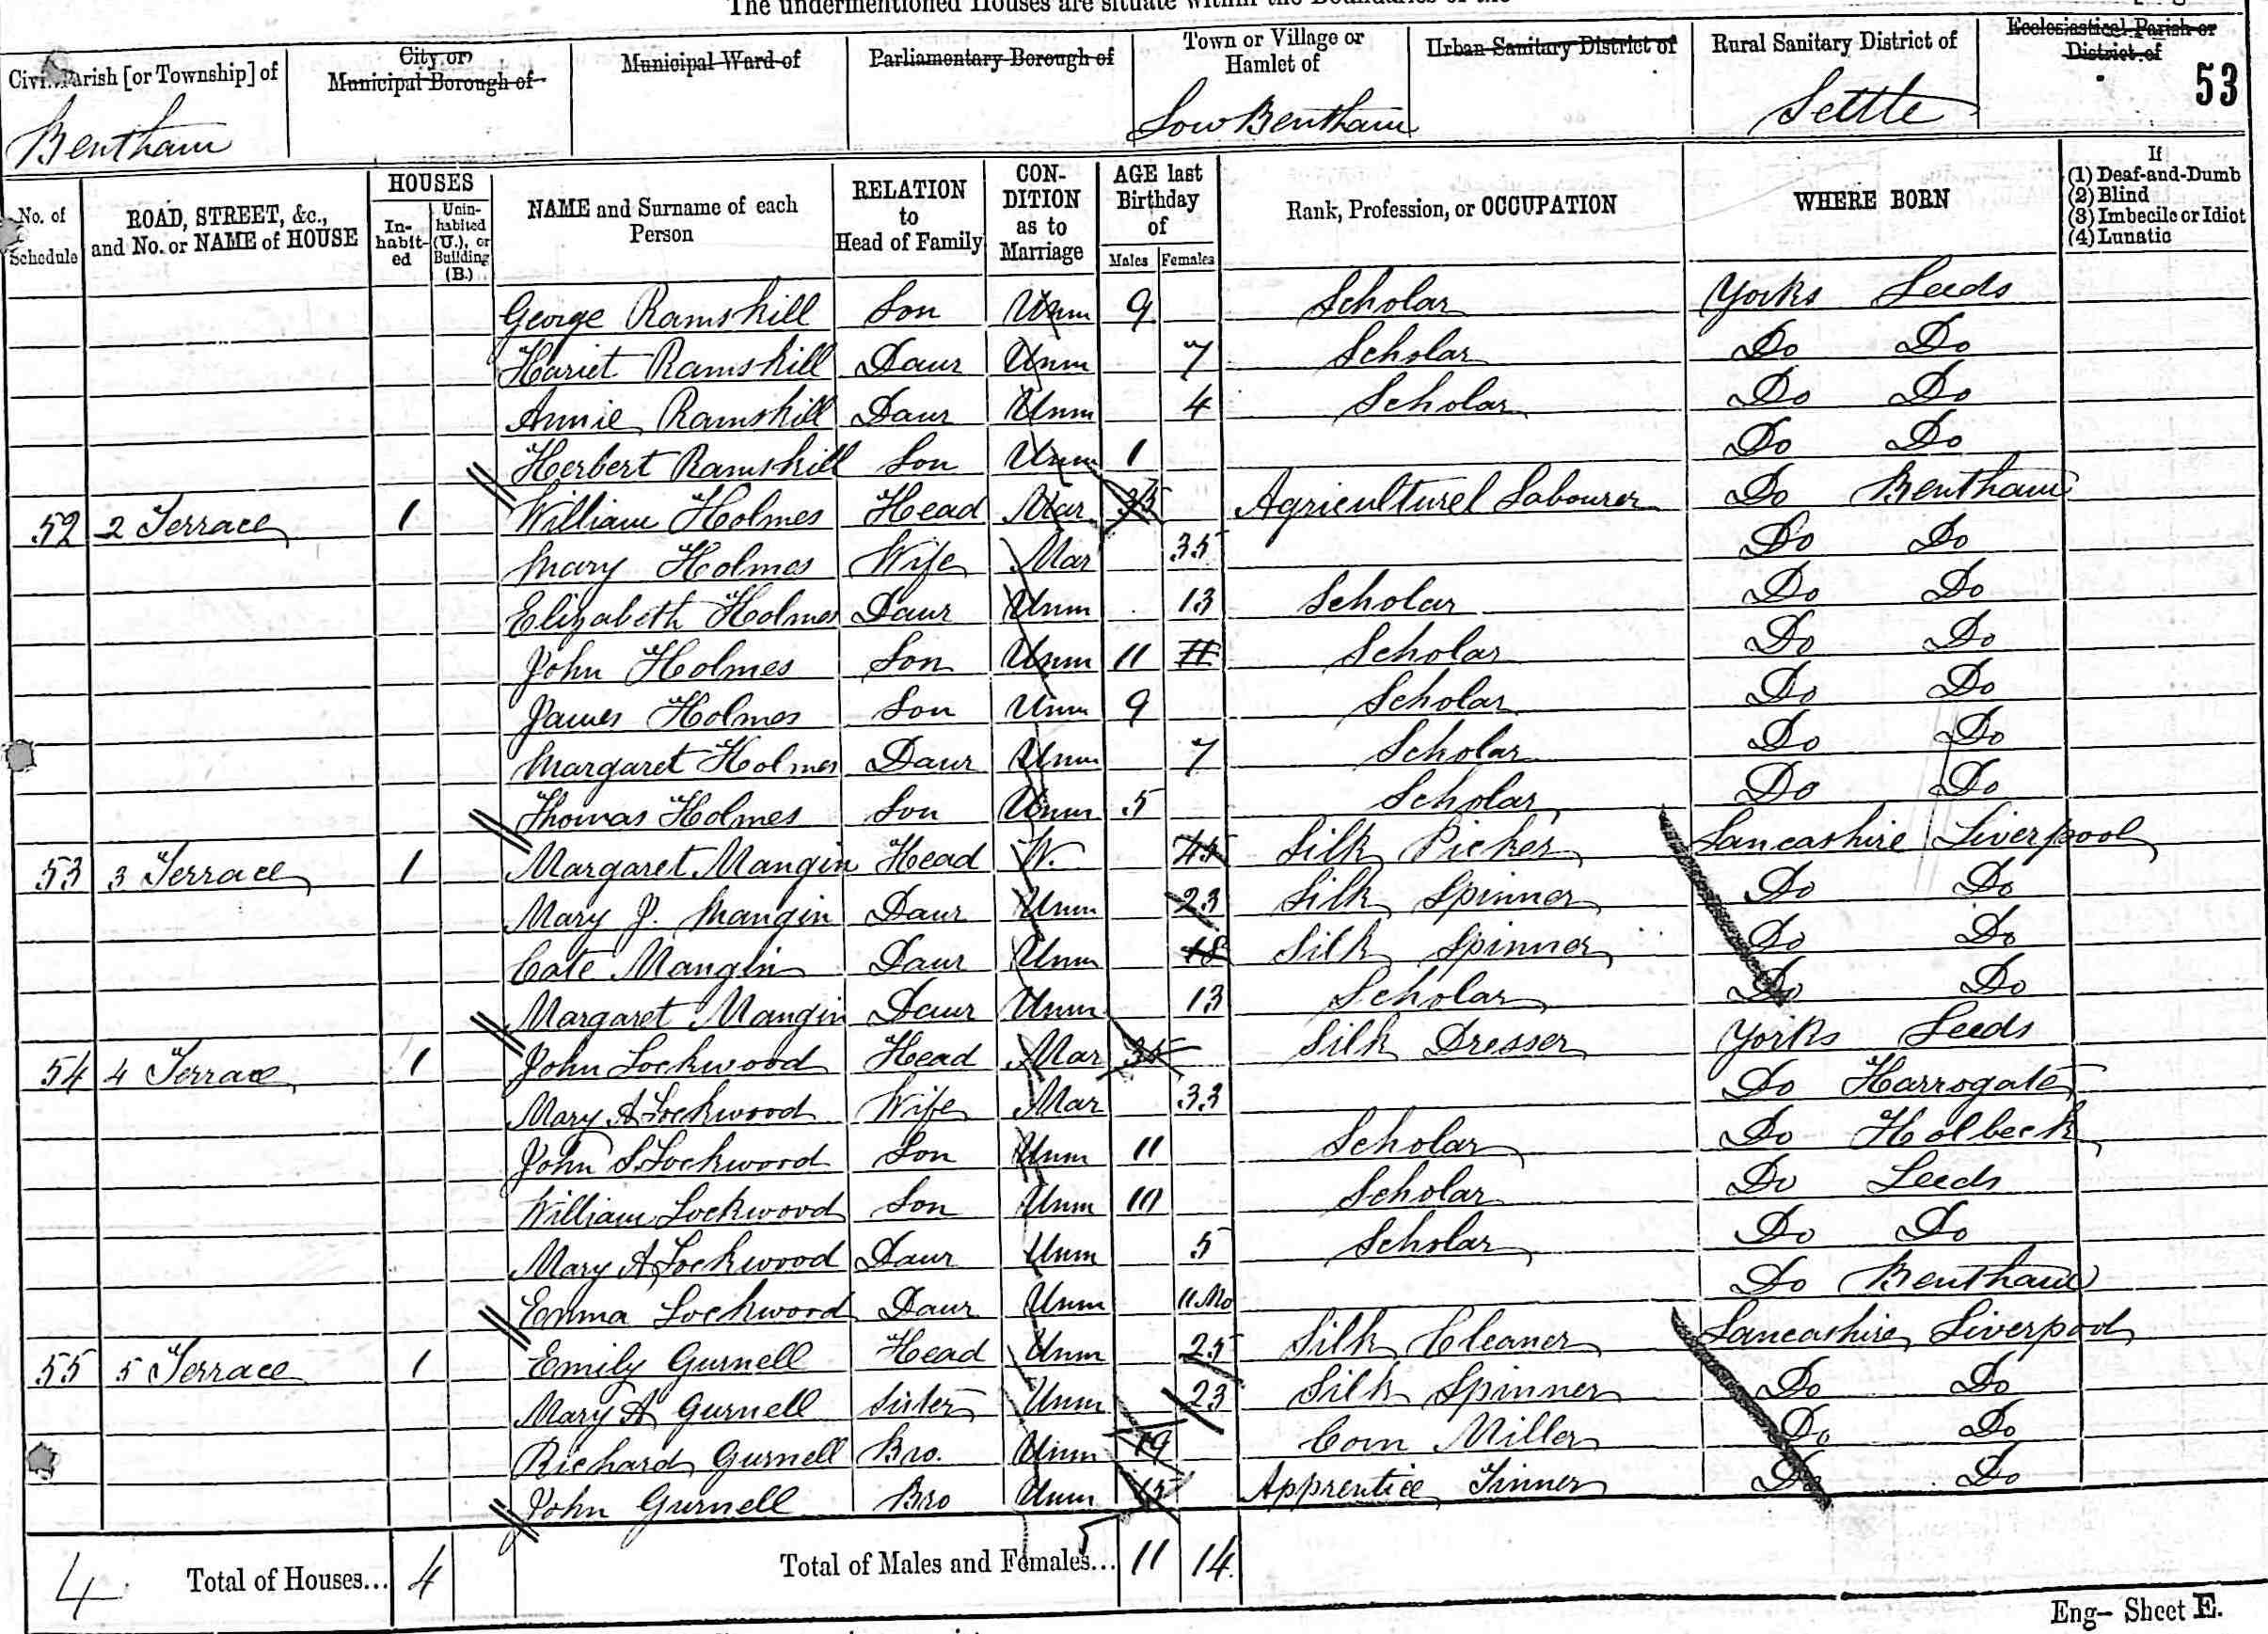 The undermentioned Houses are situate within the Boundaries of the
Civil Parish [or Township] of
Bentham
City or
Municipal Borough of
Municipal Ward of
Parliamentary Borough of
Town or Village or
Hamlet of
Low Bentham
Urban Sanitary District of
Rural Sanitary District of
Settle
Ecclesiastical Parish or
District of
53
No. of
Schedule
ROAD, STREET, &c.,
and No. or NAME of HOUSE
HOUSES
In-
habit-
ed
Unin-
habited
(U.), or
Building
(B.)
NAME and Surname of each
Person
RELATION
to
Head of Family
CON-
DITION
as to
Marriage
AGE last
Birthday
of
Males Females
Rank, Profession, or OCCUPATION
WHERE BORN
If
(1) Deaf-and-Dumb
(2) Blind
(3) Imbecile or Idiot
(4) Lunatic
George Ramshill Son Unm 9 Scholar Yorks Leeds
Hariet Ramshill Daur Unm 7 Scholar Do Do
Annie Ramshill Daur Unm 4 Scholar Do Do
Herbert Ramshill Son Unm 1 Do Do
52 2 Terrace 1 William Holmes Head Mar 35 Agriculturel Labourer Do Bentham
Mary Holmes Wife Mar 35 Do Do
Elizabeth Holmes Daur Unm 13 Scholar Do Do
John Holmes Son Unm 11 11 Scholar Do Do
James Holmes Son Unm 9 Scholar Do Do
Margaret Holmes Daur Unm 7 Scholar Do Do
Thomas Holmes Son Unm 5 Scholar Do Do
53 3 Terrace 1 Margaret Mangin Head W. 45 Silk Picker Lancashire Liverpool
Mary J. Mangin Daur Unm 23 Silk Spinner Do Do
Cate Mangin Daur Unm 18 Silk Spinner Do Do
Margaret Mangin Daur Unm 13 Scholar Do Do
54 4 Terrace 1 John Lockwood Head Mar 35 Silk Dresser Yorks Leeds
Mary A Lockwood Wife Mar 33 Do Harrogate
John S. Lockwood Son Unm 11 Scholar Do Holbeck
William Lockwood Son Unm 10 Scholar Do Leeds
Mary A Lockwood Daur Unm 5 Scholar Do Do
Emma Lockwood Daur Unm 11 Mo Do Bentham
55 5 Terrace 1 Emily Gurnell Head Unm 25 Silk Cleaner Lancashire Liverpool
Mary A Gurnell Sister Unm 23 Silk Spinner Do Do
Richard Gurnell Bro. Unm 19 Corn Miller Do Do
John Gurnell Bro Unm 15 Apprentice Tinner Do Do
4 Total of Houses... 4 Total of Males and Females... 11 14
Eng- Sheet E.